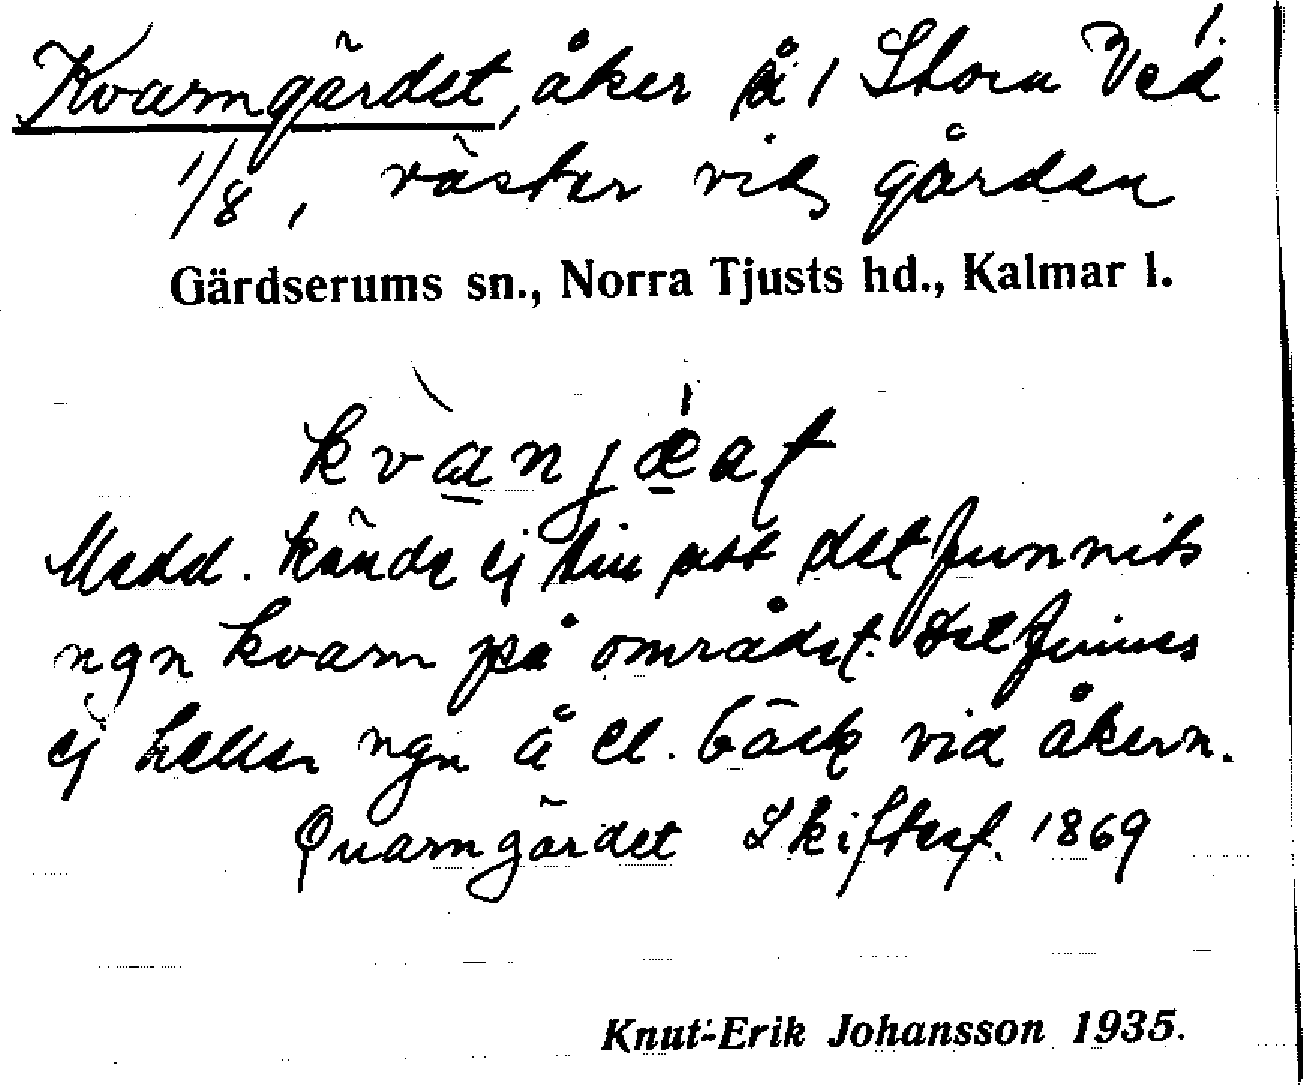 Kvarngärdet, åker på 1 Stora Ved
1/8, väster vid gården
Gärdserums sn., Norra Tjusts hd., Kalmar l.
kvanjæat
Medd. kände ej till att det funnits
ngn kvarn på området. Det finnes
ej heller ngn å el. bäck vid åkern.
Quarngärdet Skiftesf. 1869
Knut-Erik Johansson 1935.